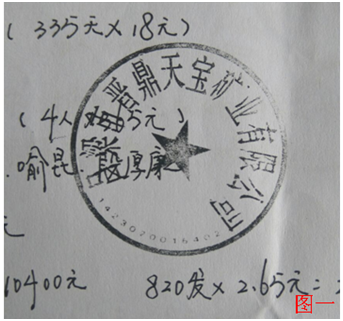 (335天×18元)
晋鼎天宝矿业有限公司
(4人 5元)
喻昆 段厚康
元
10400元 820发×2.65元=2
1423020016402
图一